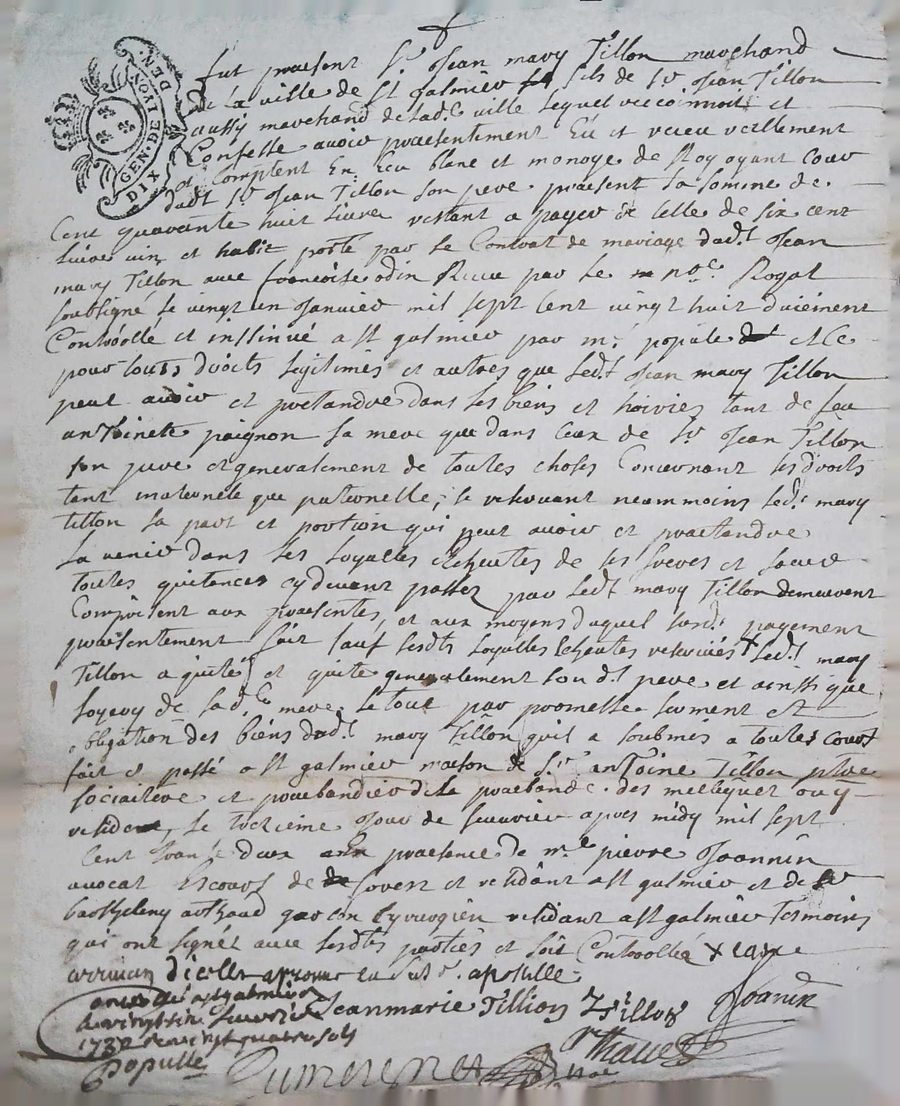 GEN. DE LYON
DIX DEN.
fut praesent Sr Jean mary Tillon marchand
de la ville de St galmier fils de Sr Jean Tillon
aussy marchand de lad.e ville lequel reconnoit et
Confesse avoir praesentement Eü et receu reellement
et Comptent En Ecu blanc et monoye de Roy ayant cour
dudt Sr Jean Tillon son pere praesent la somme de
Cent quarante huit livre restant a payer de celle de six cent
livre et habit porté par le Contrat de mariage dud.t Jean
mary Tillon avec francoise odin Receu par le nore Royal
soubsigné le vingt un Janvier mil sept cent vingt huit duëment
Controollé et inssinué a St galmier par mr populle et Ce
pour tous droits legitimes et autres que led.t Jean mary Tillon
peut avoir et pretandre dans les biens et hoiries tant de feu
anthoinete paignon sa mere que dans Ceux de Sr Jean Tillon
son pere et generalement de toutes choses Concernant ses droits
tant maternele que paternelle, se reservant neammoins led.t mary
tillon sa part et portion qui peut avoir et praetandre
a la venir dans les loyalles Echeutes de ses freres et soeurs
toutes quitances cydevant passez par ledt mary Tillon demeurent
Comprisent aux praesentes, et aux moyens duquel susd.t payement
praesentement fait sauf lesdts loyalles Echeutes reservées led.t mary
Tillon a quité et quite generalement sond.t pere et ainssi que
loyery de lad.e mere le tout par promesse serment et
obligation des biens dud.t mary Tillon quil a soubmis a toutes cours
fait et passé a St galmier maison de Sr anthoine Tillon ptre
sociaitere et praebandier de la praebande des
resident, le treizieme Jour de feuvrier apres midy mil sept
Cent trante deux en praesence de m.e pierre Joannin
avocat Es cours de forest et residant a St galmier et de Sr
barthelemy garcon Cyrurgien residant a St galmier Tesmoins
qui ont signés avec lesdts parties et soit Controollé
aprouvé apostille
Jeanmarie Tillion Tillon Joanin
a St galmier
le vingt six feuvrier
1732 vingt quatre sols
Populle